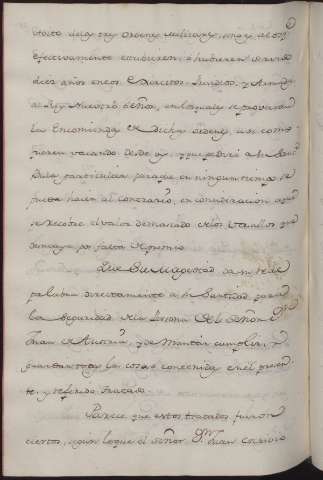 abito de las tres Ordenes Militares, sino es al que
efectivamente estubieren, o hubieren servido
diez años en sus Exercitos, Presidios, y Armadas
al Rey Nuestro Señor, en los quales se proveeran
las Encomiendas de dichas Ordenes, asi como
fueren vacando desde oy, y que pedira a Su Santidad
Bula particular para que en ningun tiempo se
pueda hacer al contrario, en consideracion a que
se recobre el valor demasiado de los Vasallos que
desmaya por falta de premio.
Que Su Magestad da su Real
palabra directamente a Su Santidad para
la seguridad de la Persona del Señor Dn.
Juan de Austria, y de mandar cumplir, y
guardar todas las cosas contenidas en el presen
te, y referido tratado.
Parece que estos tratados fueron
ciertos, segun lo que el señor Dn. Juan escrivio